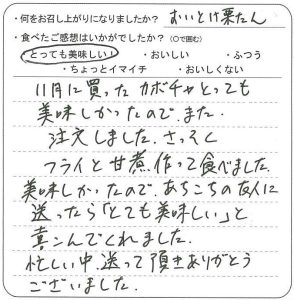 ・何をお召し上がりになりましたか？ おいとけ栗たん
・食べたご感想はいかがでしたか？（○で囲む）
とっても美味しい！ ・おいしい ・ふつう
・ちょっとイマイチ ・おいしくない
11月に買ったカボチャとっても
美味しかったので、また
注文しました。さっそく
フライと甘煮作って食べました。
美味しかったので、あちこちの友人に
送ったら「とても美味しい」と
喜こんでくれました。
忙しい中、送って頂きありがとう
ございました。